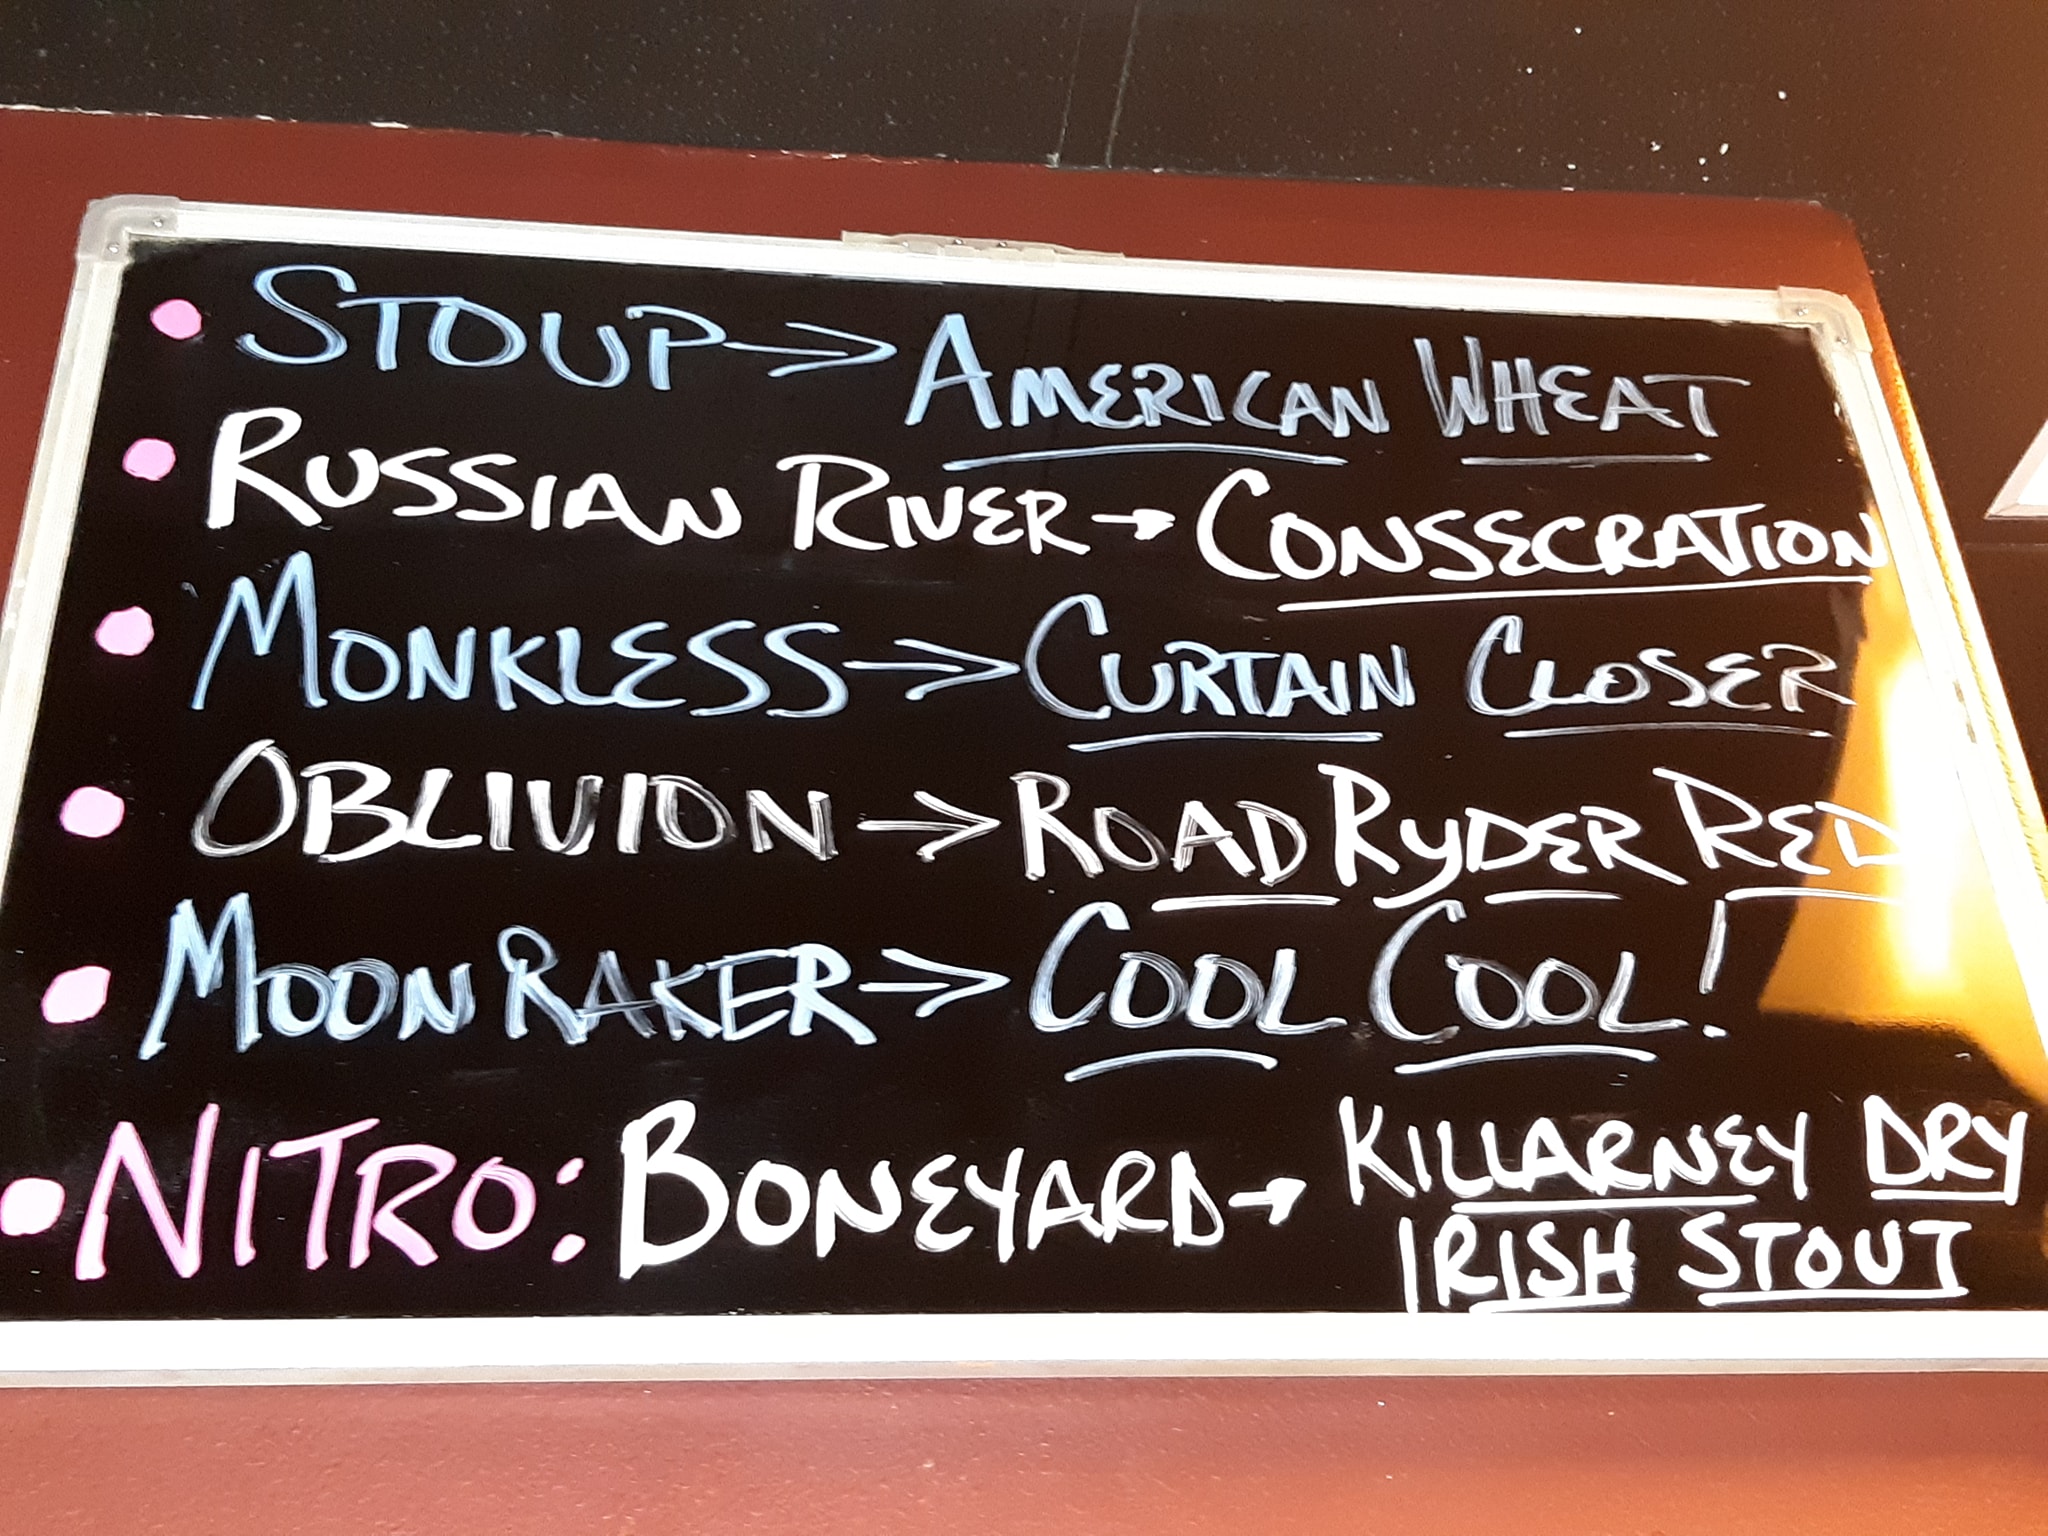 • STOUP → AMERICAN WHEAT
• RUSSIAN RIVER → CONSECRATION
• MONKLESS → CURTAIN CLOSER
• OBLIVION → ROAD RYDER RED
• MOONRAKER → COOL COOL!
• NITRO: BONEYARD → KILLARNEY DRY
IRISH STOUT